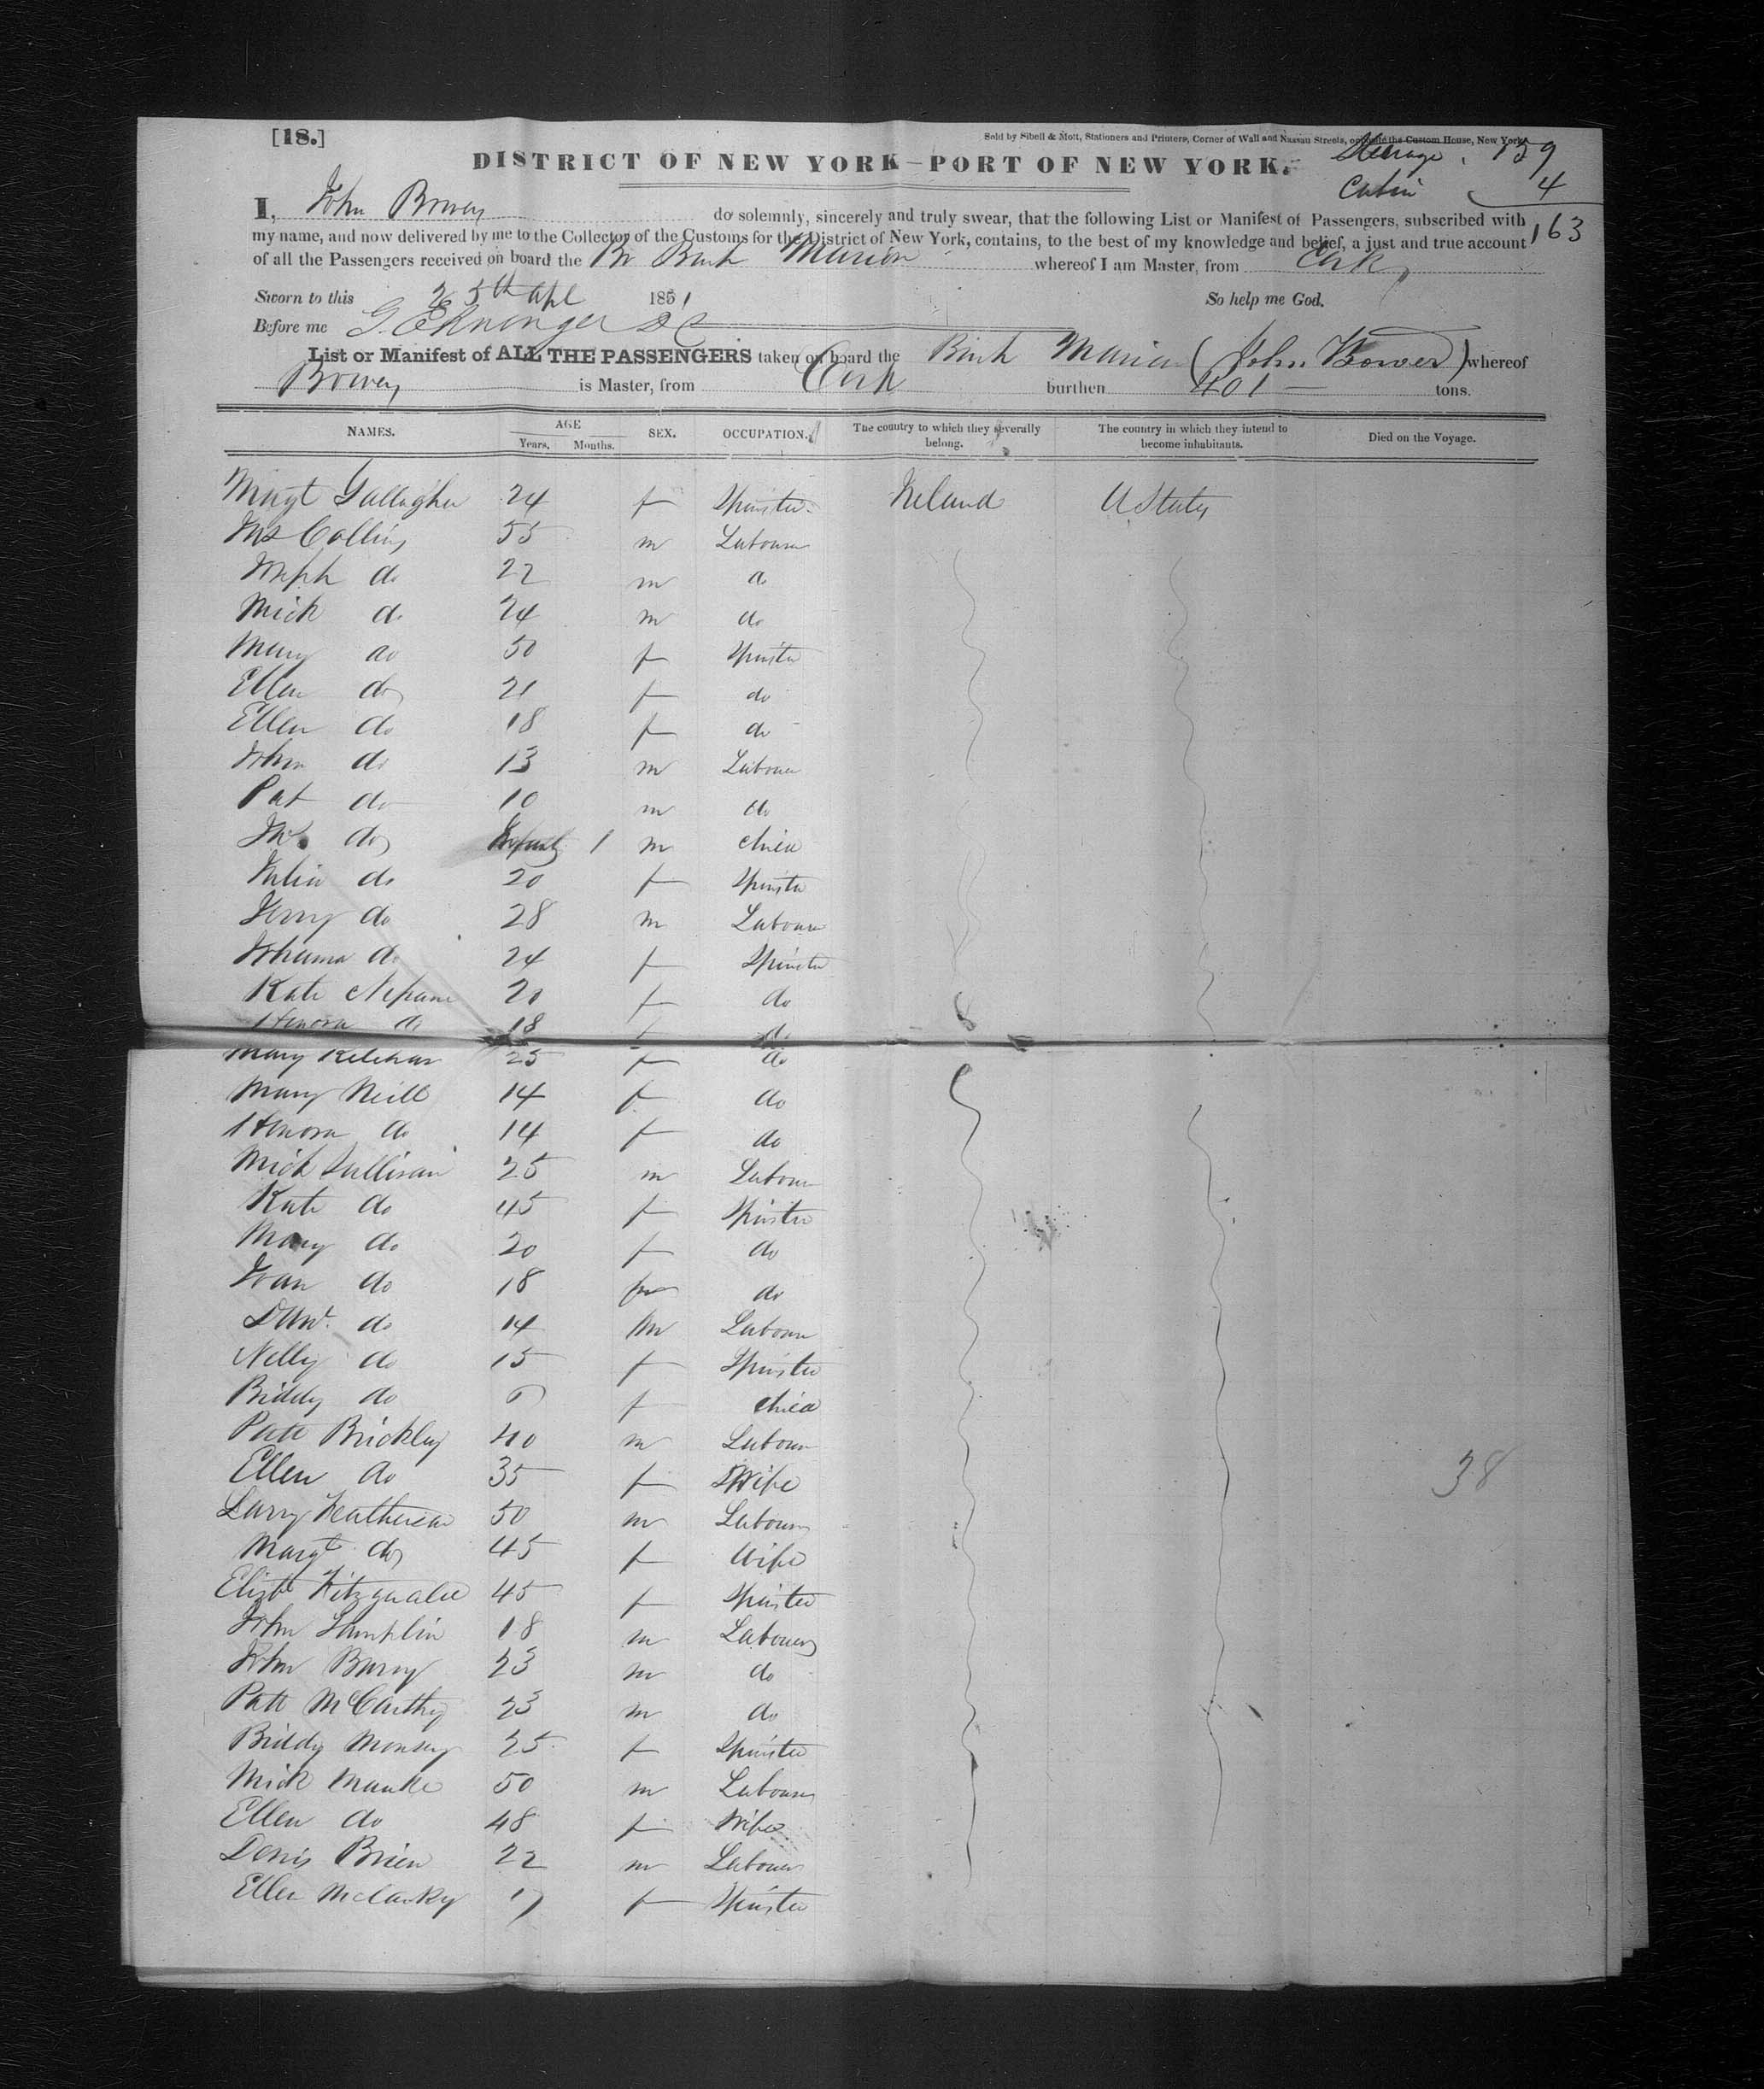 [18.]
Sold by Sibell & Mott, Stationers and Printers, Corner of Wall and Nassau Streets, opposite the Custom House, New York.
DISTRICT OF NEW YORK—PORT OF NEW YORK.
Steerage 159
Cabin 4
163
I, John Bowen do solemnly, sincerely and truly swear, that the following List or Manifest of Passengers, subscribed with
my name, and now delivered by me to the Collector of the Customs for the District of New York, contains, to the best of my knowledge and belief, a just and true account
of all the Passengers received on board the Br Bark Maria whereof I am Master, from Cork
Sworn to this 25th Apl 1851 So help me God.
Before me
List or Manifest of ALL THE PASSENGERS taken on board the Bark Maria (John Bower) whereof
Bowen is Master, from Cork burthen 401 tons.
NAMES. AGE Years. Months. SEX. OCCUPATION. The country to which they severally belong. The country in which they intend to become inhabitants. Died on the Voyage.
Margt Gallagher 24 f Spinster Ireland U States
Collins 55 m Labourer
Joseph do 22 m do
Mick do 24 m do
Mary do 50 f Spinster
Ellen do 21 f do
Ellen do 18 f do
John do 13 m Labourer
Pat do 10 m do
do Infant 1 m child
Julia do 20 f Spinster
Jerry do 28 m Labourer
Johanna do 24 f Spinster
Kate 20 f do
Honora do 18 f do
Mary 25 f do
Mary Neill 14 f do
Honora do 14 f do
Mick Sullivan 25 m Labour
Kate do 45 f Spinster
Mary do 20 f do
Joan do 18 f do
do 14 m Labour
Nelly do 15 f Spinster
Biddy do f child
Patt Brickley 40 m Labour
Ellen do 35 f Wife
38
Larry 50 m Labourer
Margt do 45 f Wife
Elizth Fitzgerald 45 f Spinster
John 18 m Labourer
John Barry 23 m do
Patt McCarthy 23 m do
Biddy 25 f Spinster
Mick 50 m Labourer
Ellen do 48 f Wife
Denis Brien 22 m Labourer
Ellen 17 f Spinster